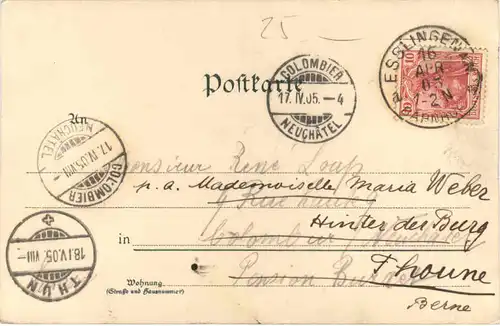 25 —
Postkarte
COLOMBIER
17.IV.05.-4
NEUCHÂTEL
ESSLINGEN
16 APR 05
1-2 N
BAHNHOF
10 10
An
NEUCHÂTEL
17.IV.05.VIII
COLOMBIER
Monsieur René
p. a. Mademoiselle Maria Weber
Hinter der Burg
in Colombier
Thoune
Pension
Berne
Wohnung
(Straße und Hausnummer)
18.IV.05.VIII-
THUN